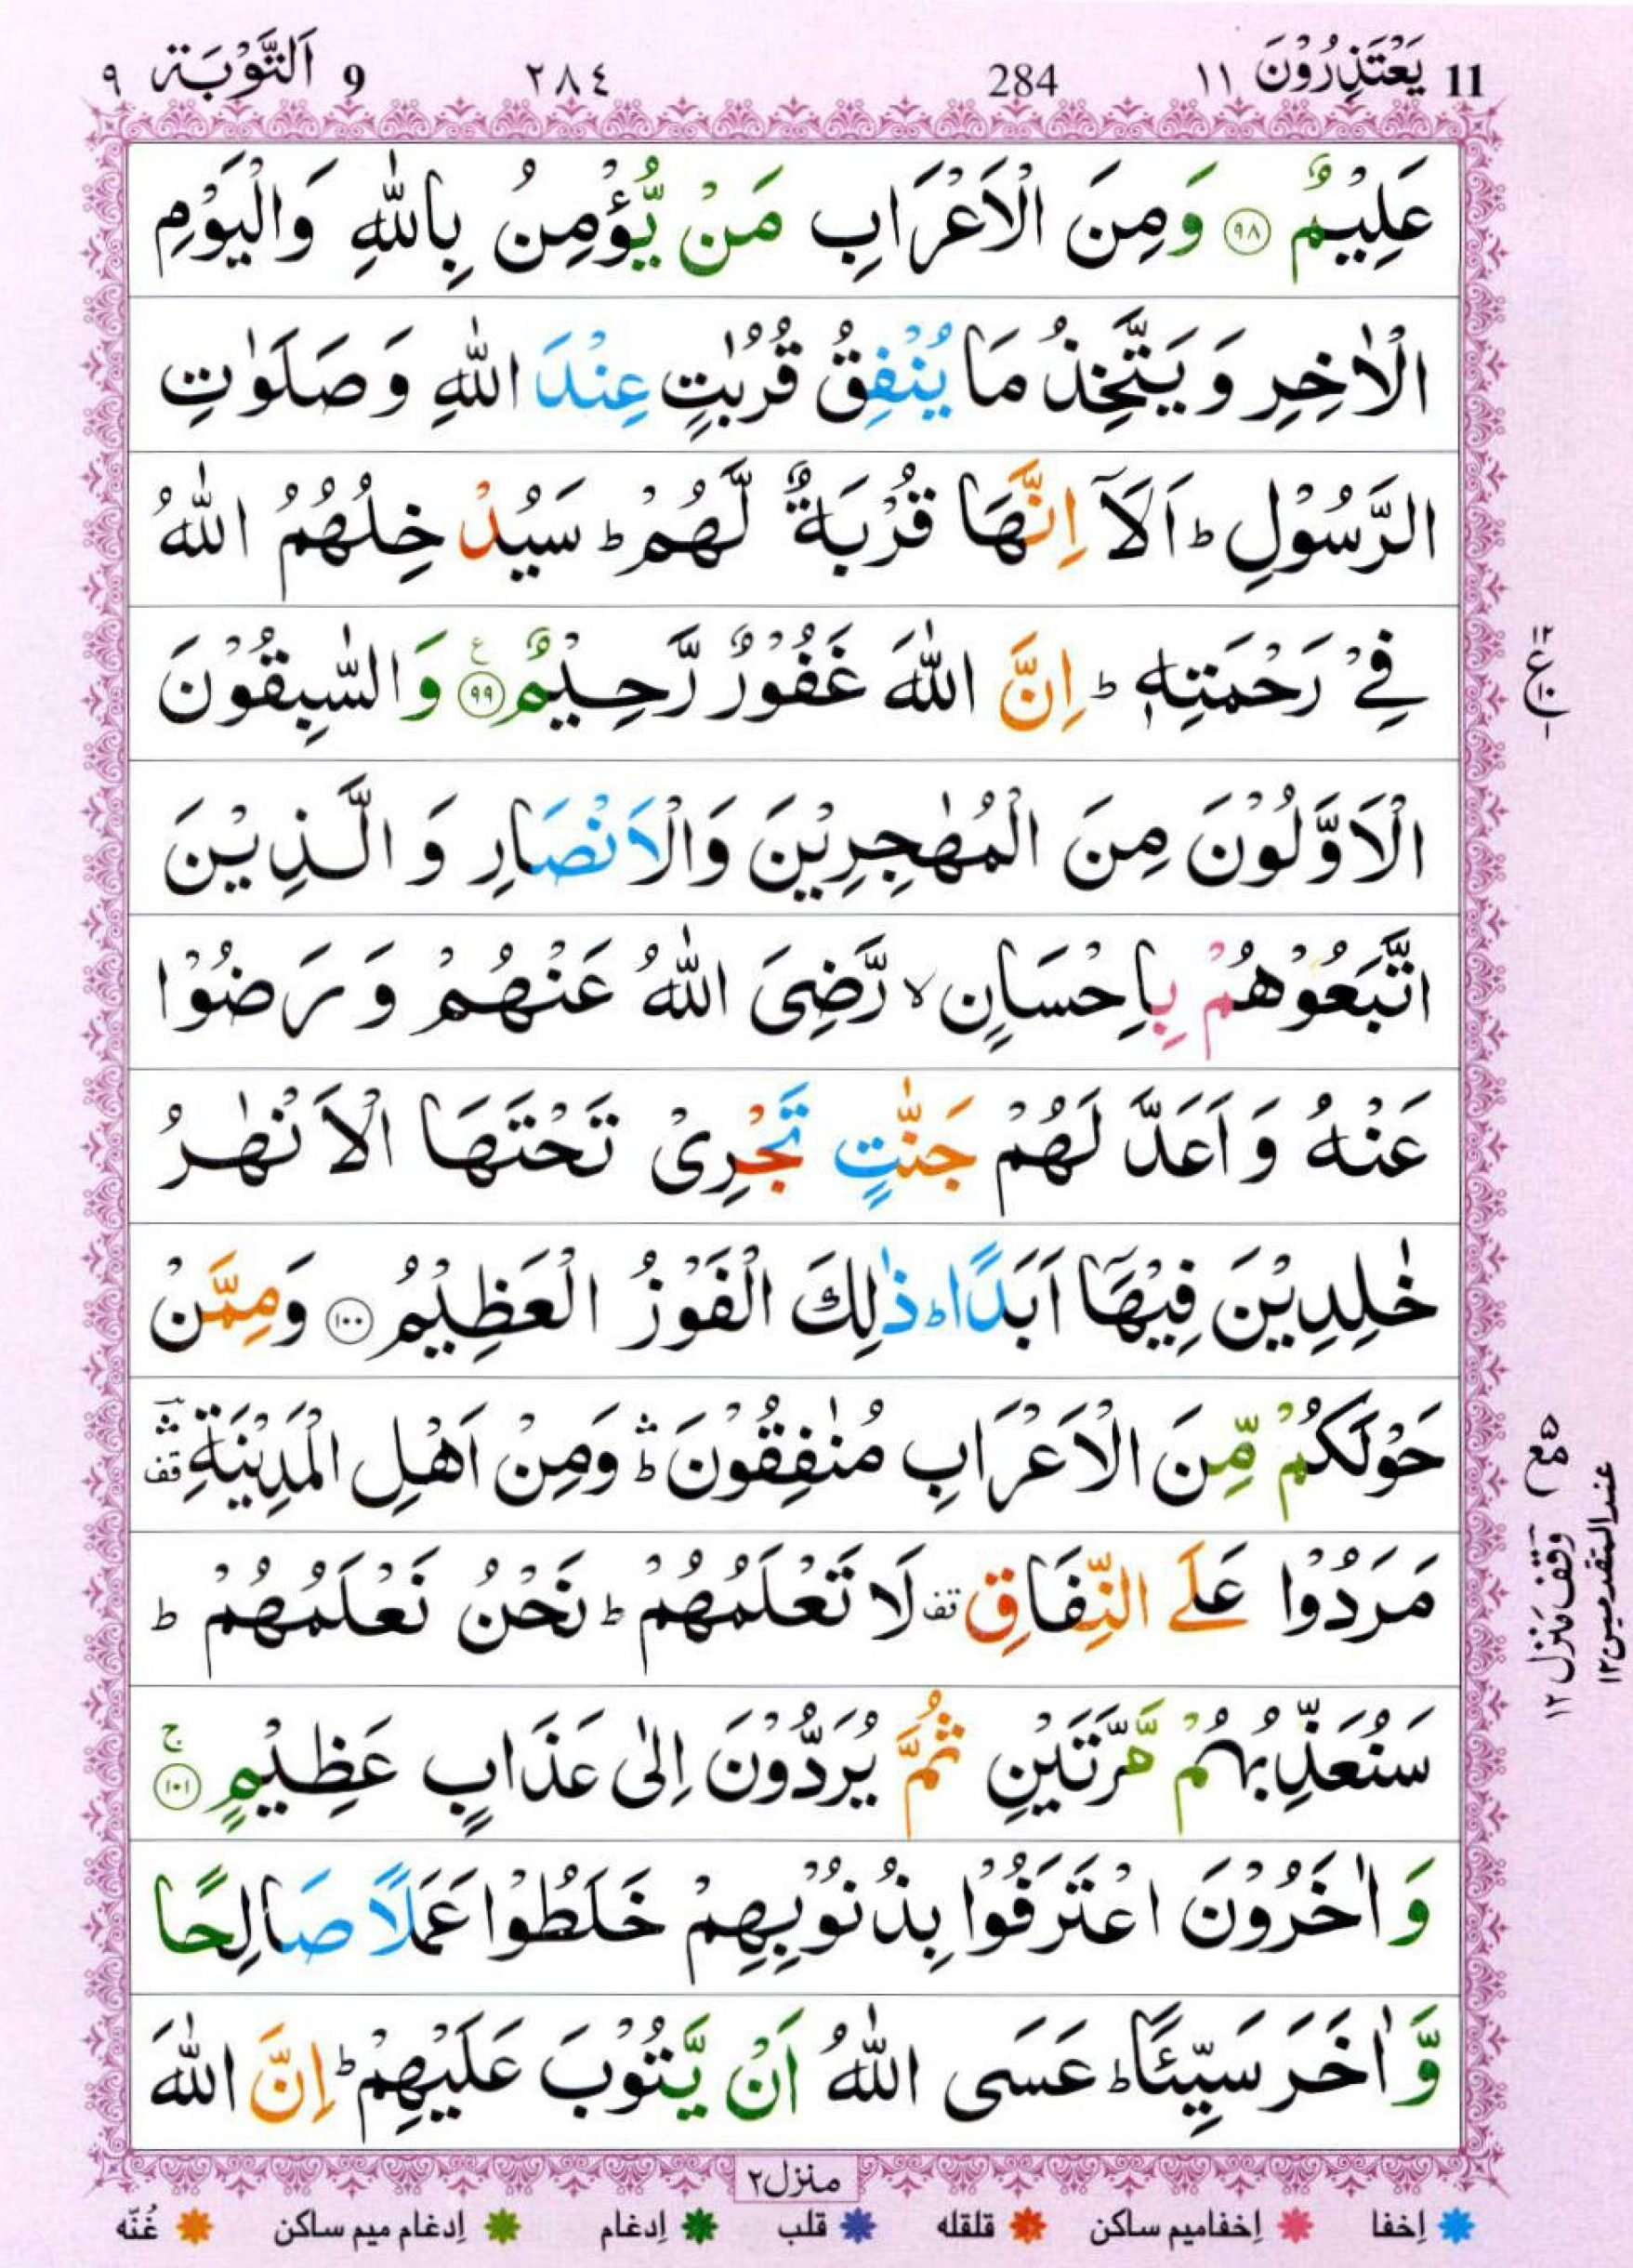 11 يَعْتَذِرُوْنَ ١١ 284 ٢٨٤ 9 اَلتَّوْبَة ٩
عَلِيْمٌ ﴿٩٨﴾ وَمِنَ الْاَعْرَابِ مَنْ يُّؤْمِنُ بِاللّٰهِ وَالْيَوْمِ
الْاٰخِرِ وَ يَتَّخِذُ مَا يُنْفِقُ قُرُبٰتٍ عِنْدَ اللّٰهِ وَ صَلَوٰتِ
الرَّسُوْلِ ؕ اَلَاۤ اِنَّهَا قُرْبَةٌ لَّهُمْ ؕ سَيُدْخِلُهُمُ اللّٰهُ
فِيْ رَحْمَتِهٖ ؕ اِنَّ اللّٰهَ غَفُوْرٌ رَّحِيْمٌ ﴿٩٩﴾ ع وَ السّٰبِقُوْنَ
١٢ ع ١٠ ١
الْاَوَّلُوْنَ مِنَ الْمُهٰجِرِيْنَ وَالْاَنْصَارِ وَ الَّذِيْنَ
اتَّبَعُوْهُمْ بِاِحْسَانٍ ۙ رَّضِيَ اللّٰهُ عَنْهُمْ وَ رَضُوْا
عَنْهُ وَ اَعَدَّ لَهُمْ جَنّٰتٍ تَجْرِيْ تَحْتَهَا الْاَنْهٰرُ
خٰلِدِيْنَ فِيْهَاۤ اَبَدًا ؕ ذٰلِكَ الْفَوْزُ الْعَظِيْمُ ﴿١٠٠﴾ وَمِمَّنْ
حَوْلَكُمْ مِّنَ الْاَعْرَابِ مُنٰفِقُوْنَ ۛؕ وَمِنْ اَهْلِ الْمَدِيْنَةِ ۛ قف
مَرَدُوْا عَلَى النِّفَاقِ قف لَا تَعْلَمُهُمْ ؕ نَحْنُ نَعْلَمُهُمْ ؕ
وقف منزل ١٢
عند المتقدمين ١٢
سَنُعَذِّبُهُمْ مَّرَّتَيْنِ ثُمَّ يُرَدُّوْنَ اِلٰى عَذَابٍ عَظِيْمٍ ﴿١٠١﴾ ۚ
وَ اٰخَرُوْنَ اعْتَرَفُوْا بِذُنُوْبِهِمْ خَلَطُوْا عَمَلًا صَالِحًا
وَّ اٰخَرَ سَيِّئًا ؕ عَسَى اللّٰهُ اَنْ يَّتُوْبَ عَلَيْهِمْ ؕ اِنَّ اللّٰهَ
منزل ٢
اِخفا اِخفا میم ساکن قلقله قلب اِدغام اِدغام میم ساکن غُنّه